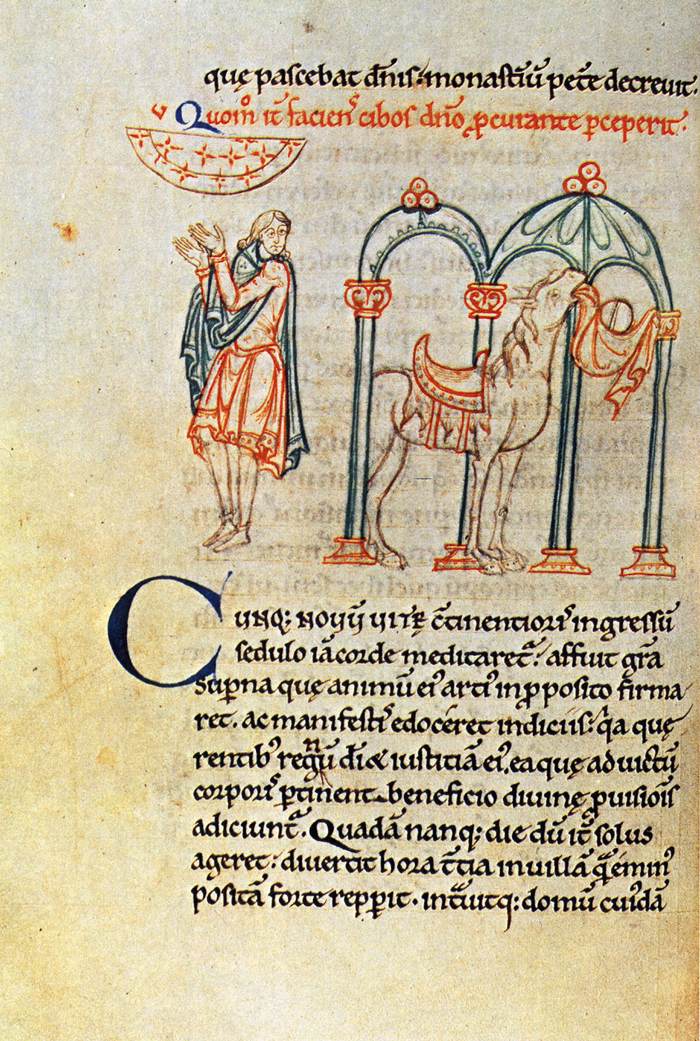 quę pascebat dñis; monast̃iũ pet̃e decreuit.
Quom̊ it̃ facienˢ cibos dño ꝓcurante ꝑceperit.
Cunq; nouũ uitę c̃tinentiorˢ ingressũ
sedulo iã corde meditaret̃. affuit gr̃a
superna quę animũ eiˀ artiˀ in ꝓposito firma
ret. ac manifestiˢ edoceret indiciis. q̃a quę
rentibˀ regnũ dĩ & iustitiã eiˀ. ea quę ad uictũ
corporˢ ꝑtinent beneficio diuinę ꝓuisiõis
adiciunt̃. Quadã nanq; die dũ it̃ solus
ageret. diuertit hora t̃tia in uillã q̃ẽ eminˀ
positã forte repꝑit. int̃uitq; domũ cuidã